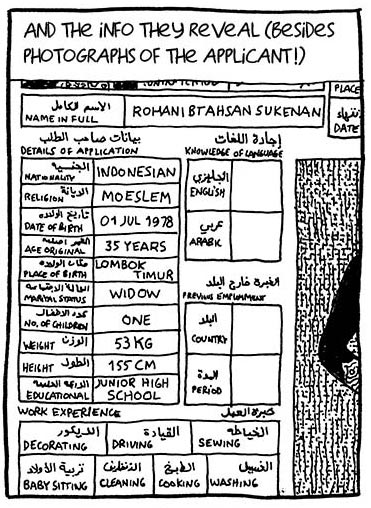 AND THE INFO THEY REVEAL (BESIDES
PHOTOGRAPHS OF THE APPLICANT!)
PLACE
الاسم الكامل
NAME IN FULL
ROHANI BTAHSAN SUKENAN
DATE
بيانات صاحب الطلب
DETAILS OF APPLICATION
الجنسية
NATIONALITY
INDONESIAN
الديانة
RELIGION
MOESLEM
تاريخ الولادة
DATE OF BIRTH
01 JUL 1978
AGE ORIGINAL
35 YEARS
مكان الولادة
PLACE OF BIRTH
LOMBOK
TIMUR
MARITAL STATUS
WIDOW
عدد الاطفال
NO. OF CHILDREN
ONE
الوزن
WEIGHT
53 KG
الطول
HEIGHT
155 CM
EDUCATIONAL
JUNIOR HIGH
SCHOOL
إجادة اللغات
KNOWLEDGE OF LANGUAGE
انجليزي
ENGLISH
عربي
ARABIC
الخبرة خارج البلد
البلد
COUNTRY
المدة
PERIOD
WORK EXPERIENCE
خبرة العمل
الديكور
DECORATING
القيادة
DRIVING
الخياطه
SEWING
تربية الأولاد
BABY SITTING
التنظيف
CLEANING
الطبخ
COOKING
الغسيل
WASHING